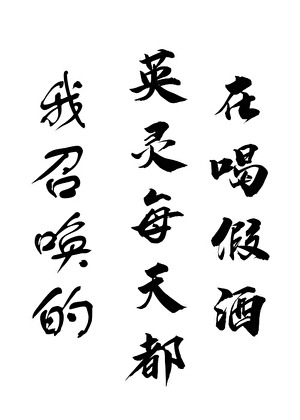 我召唤的
英灵每天都
在喝假酒